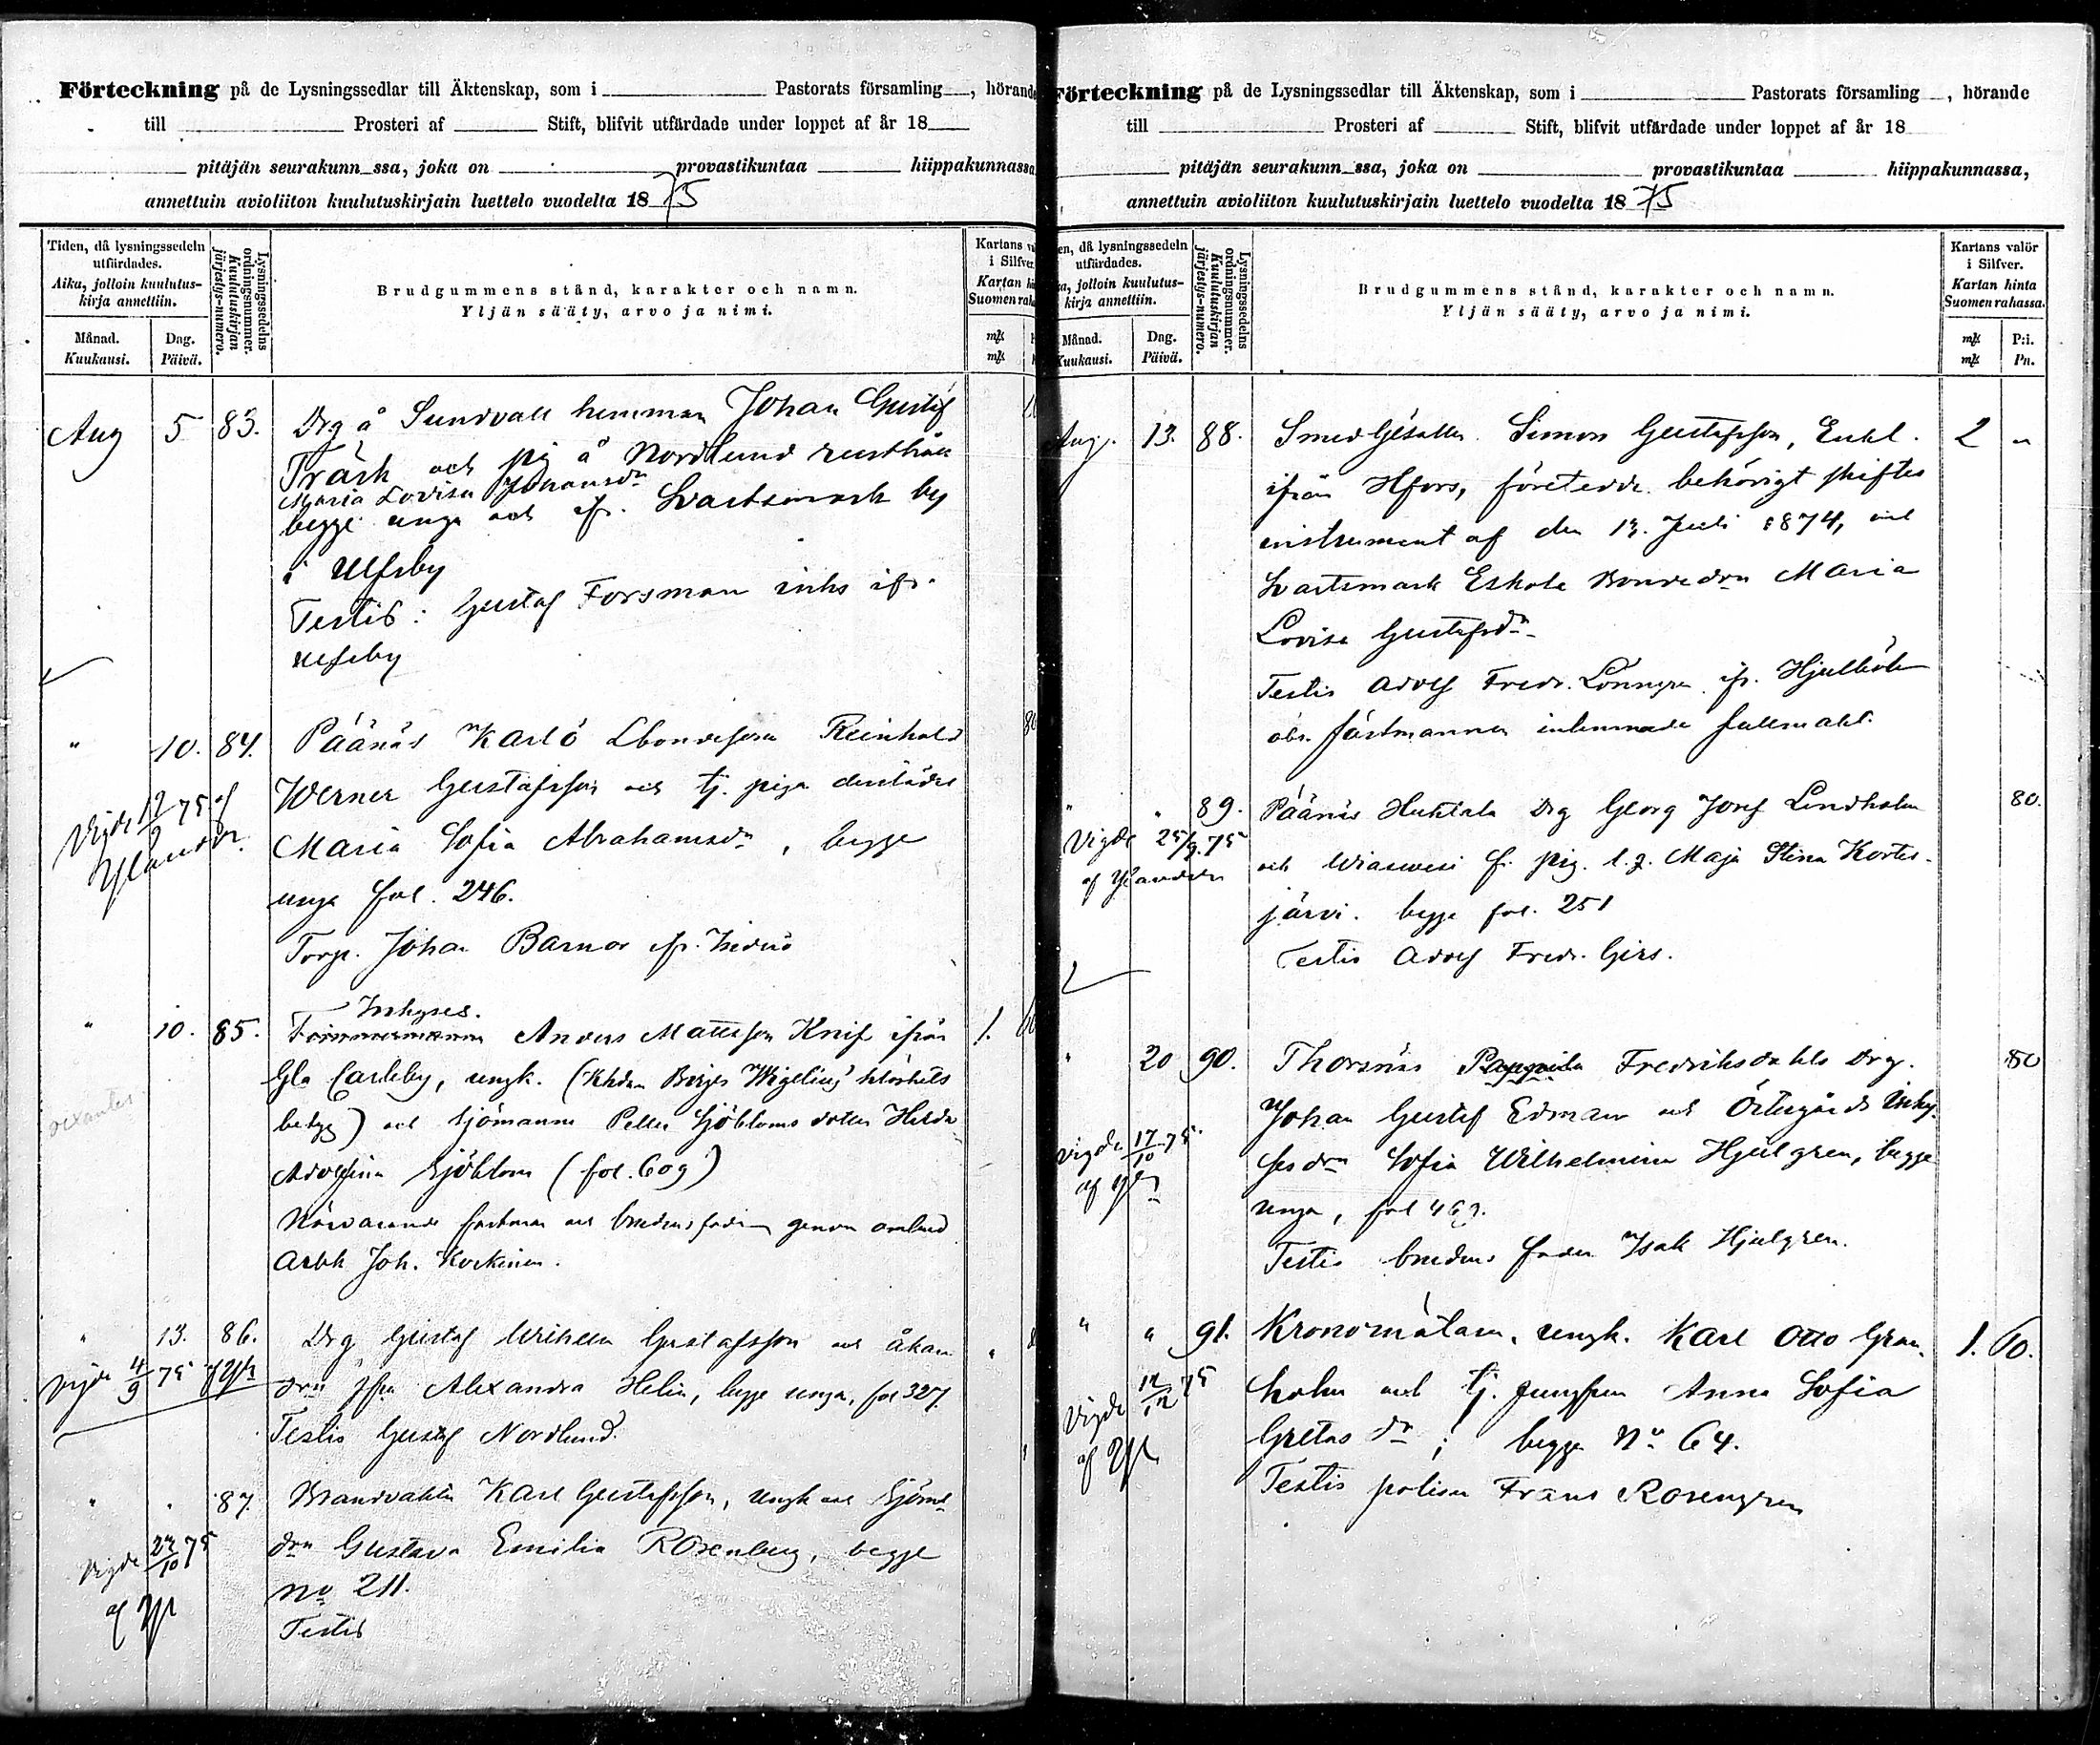 Förteckning på de Lysningssedlar till Äktenskap, som i Pastorats församling, hörande
till Prosteri af Stift, blifvit utfärdade under loppet af år 18
pitäjän seurakunn ssa, joka on provastikuntaa hiippakunnassa
annettuin avioliiton kuulutuskirjain luettelo vuodelta 1875
Tiden, då lysningssedeln utfärdades.
Aika, jolloin kuulutus-
kirja annettiin.
Månad.
Kuukausi.
Dag.
Päivä.
Lysningssedelns
ordningsnummer.
Kuulutuskirjan
järjestys-numero.
Brudgummens stånd, karakter och namn.
Yljän sääty, arvo ja nimi.
Kartans
i Silfver.
Kartan
Suomen
mk
mk
Aug 5 83. Drg å Sundvall hemman Johan Gustaf
Träsk och pig å Nordlund rusthåll
Maria Lovisa Johansdr
begge unga och ifr. Svartsmark by
i Ulfsby
Testis: Gustaf Forsman inhs ifr.
Ulfsby
" 10. 84. Päänäs Karlö Lbondeson Reinhold
Werner Gustafsson och tj. piga derstädes
Maria Sofia Abrahamsdr, begge
unga fol. 246.
Torp. Johan Barnor ifr.
Vigde 12/9 75 af
Ylander.
" 10. 85. Inhyses.
Timmermannen Anders Mattsson Knif ifrån 1.
Gla Carleby, ungk. (Khdn Birger Wigelius
betyg) och Sjömannen Petter Sjöbloms dotter Hilda
Adolfina Sjöblom (fol. 609)
Närvarande fästman och brudens fader genom ombud
Arbk Joh. Korkinen.
" 13. 86. Drg Gustaf Wilhelm Gustafsson och åkare
drn jfru Alexandra Helin, begge unga, fol 327.
Testis Gustaf Nordlund.
Vigde 4/9 75 af Ylr
" " 87. Brandvakten Karl Gustafsson, ungk och Sjöms
drn Gustava Emilia Rosenberg, begge
No 211.
Testis
Vigde 23/10 75
af Ylr
Förteckning på de Lysningssedlar till Äktenskap, som i Pastorats församling, hörande
till Prosteri af Stift, blifvit utfärdade under loppet af år 18
pitäjän seurakunn ssa, joka on provastikuntaa hiippakunnassa,
annettuin avioliiton kuulutuskirjain luettelo vuodelta 1875
en, då lysningssedeln
utfärdades.
a, jolloin kuulutus-
kirja annettiin.
Månad.
Kuukausi.
Dag.
Päivä.
Lysningssedelns
ordningsnummer.
Kuulutuskirjan
järjestys-numero.
Brudgummens stånd, karakter och namn.
Yljän sääty, arvo ja nimi.
Kartans valör
i Silfver.
Kartan hinta
Suomen rahassa.
mk P:i.
mk Pn.
Aug. 13. 88. Smedgesällen Simon Gustafsson, Enkl. 2 "
ifrån Hfors, företedde behörigt skiftes
instrument af den 13. Juli 1874, och
Svartsmark Eskola Bondedrn Maria
Lovisa Gustafsdr
Testis Adolf Fredr. Lönngren ifr. Hjulböle
obs. fästmannen inlemnade fullmakt.
" " 89. Päänäs Huhtala Drg Georg Josef Lindholm 80.
och Wiasvesi f. pig. l. z. Maja Stina Kortes-
järvi. begge fol. 251
Testis Adolf Fredr. Girs.
Vigde 25/9. 75
af Ylander
" 20 90. Thorsnäs Pappila Fredriksdahls Drg. 80
Johan Gustaf Edman och Östergårds Inhy-
ses drn Sofia Wilhelmina Hjulgren, begge
unga, fol 463.
Testis brudens fader Isak Hjulgren.
Vigde 17/10 75
af Ylr
" " 91. Kronomätarn, ungk. Karl Otto Gran- 1. 60.
holm och tj. jungfrun Anna Sofia
Gretas dr; begge No 64.
Testis polisen Frans Rosengren
Vigde 12/12 75
af Ylr